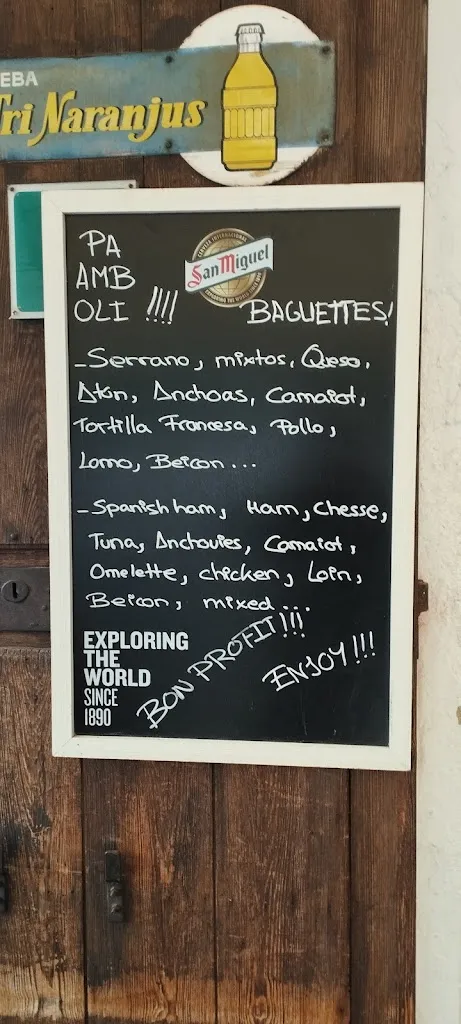 EBA
Tri Naranjus
CERVEZA INTERNACIONAL
San Miguel
EXPLORING THE WORLD
PA
AMB
OLI !!!!
BAGUETTES!
- Serrano, mixtos, Queso,
Atún, Anchoas, Camaiot,
Tortilla Francesa, Pollo,
Lomo, Beicon...
- Spanish ham, Ham, Chesse,
Tuna, Anchovies, Camaiot,
Omelette, chicken, Loin,
Beicon, mixed...
EXPLORING
THE
WORLD
SINCE
1890
BON PROFIT!!!
ENJOY!!!